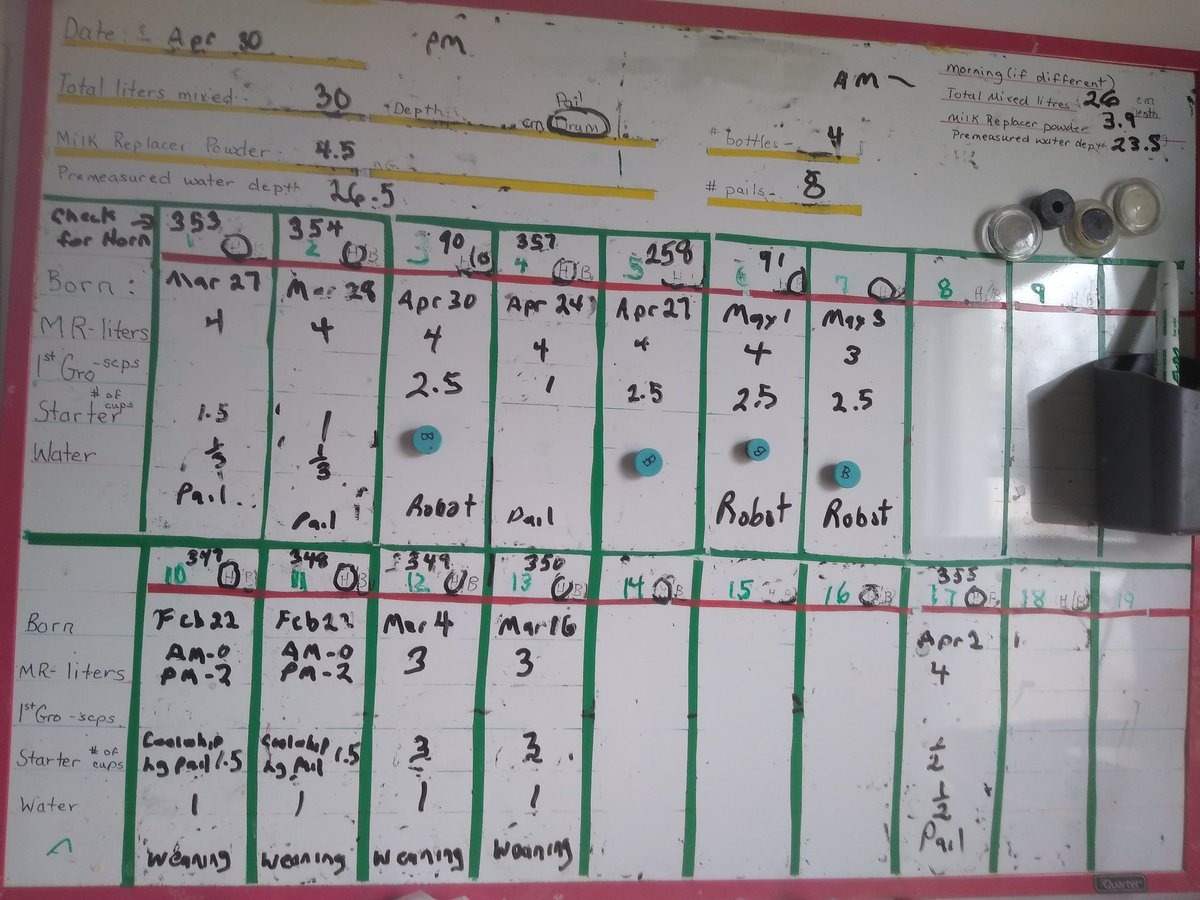 Date: Apr 30 pm
Total liters mixed: 30 Depth: cm Pail Drum
Milk Replacer Powder: 4.5 KG
Premeasured water depth 26.5
AM
# bottles - 4
# pails - 8
Morning (if different)
Total Mixed litres: 26 cm depth
Milk Replacer powder 3.9
Premeasured water depth 23.5
Check → for Horn 353 354 90 357 258 91
1 2 H B 3 4 H B 5 6 7 8 9
Born: Mar 27 Mar 28 Apr 30 Apr 24 Apr 27 May 1 May 3
MR-liters 4 4 4 4 4 4 3
1st Gro -scps 2.5 1 2.5 2.5 2.5
Starter # of cups 1.5 1
Water 1/3 1/3 B B B B
Pail Pail Robot Pail Robot Robot
348 349 350 355
10 H B 11 H B 12 B 13 B 14 B 15 16 B 17 B 18 H/B 19
Born Feb 22 Feb 22 Mar 4 Mar 16 Apr 2
MR-liters AM-0 PM-2 AM-0 PM-2 3 3 4
1st Gro -scps
Starter # of cups Coolwhip Lg Pail 1.5 Coolwhip Lg Pail 1.5 3/2 3/2 1/2
Water 1 1 1 1 1/2
Weaning Weaning Weaning Weaning Pail
Quartet